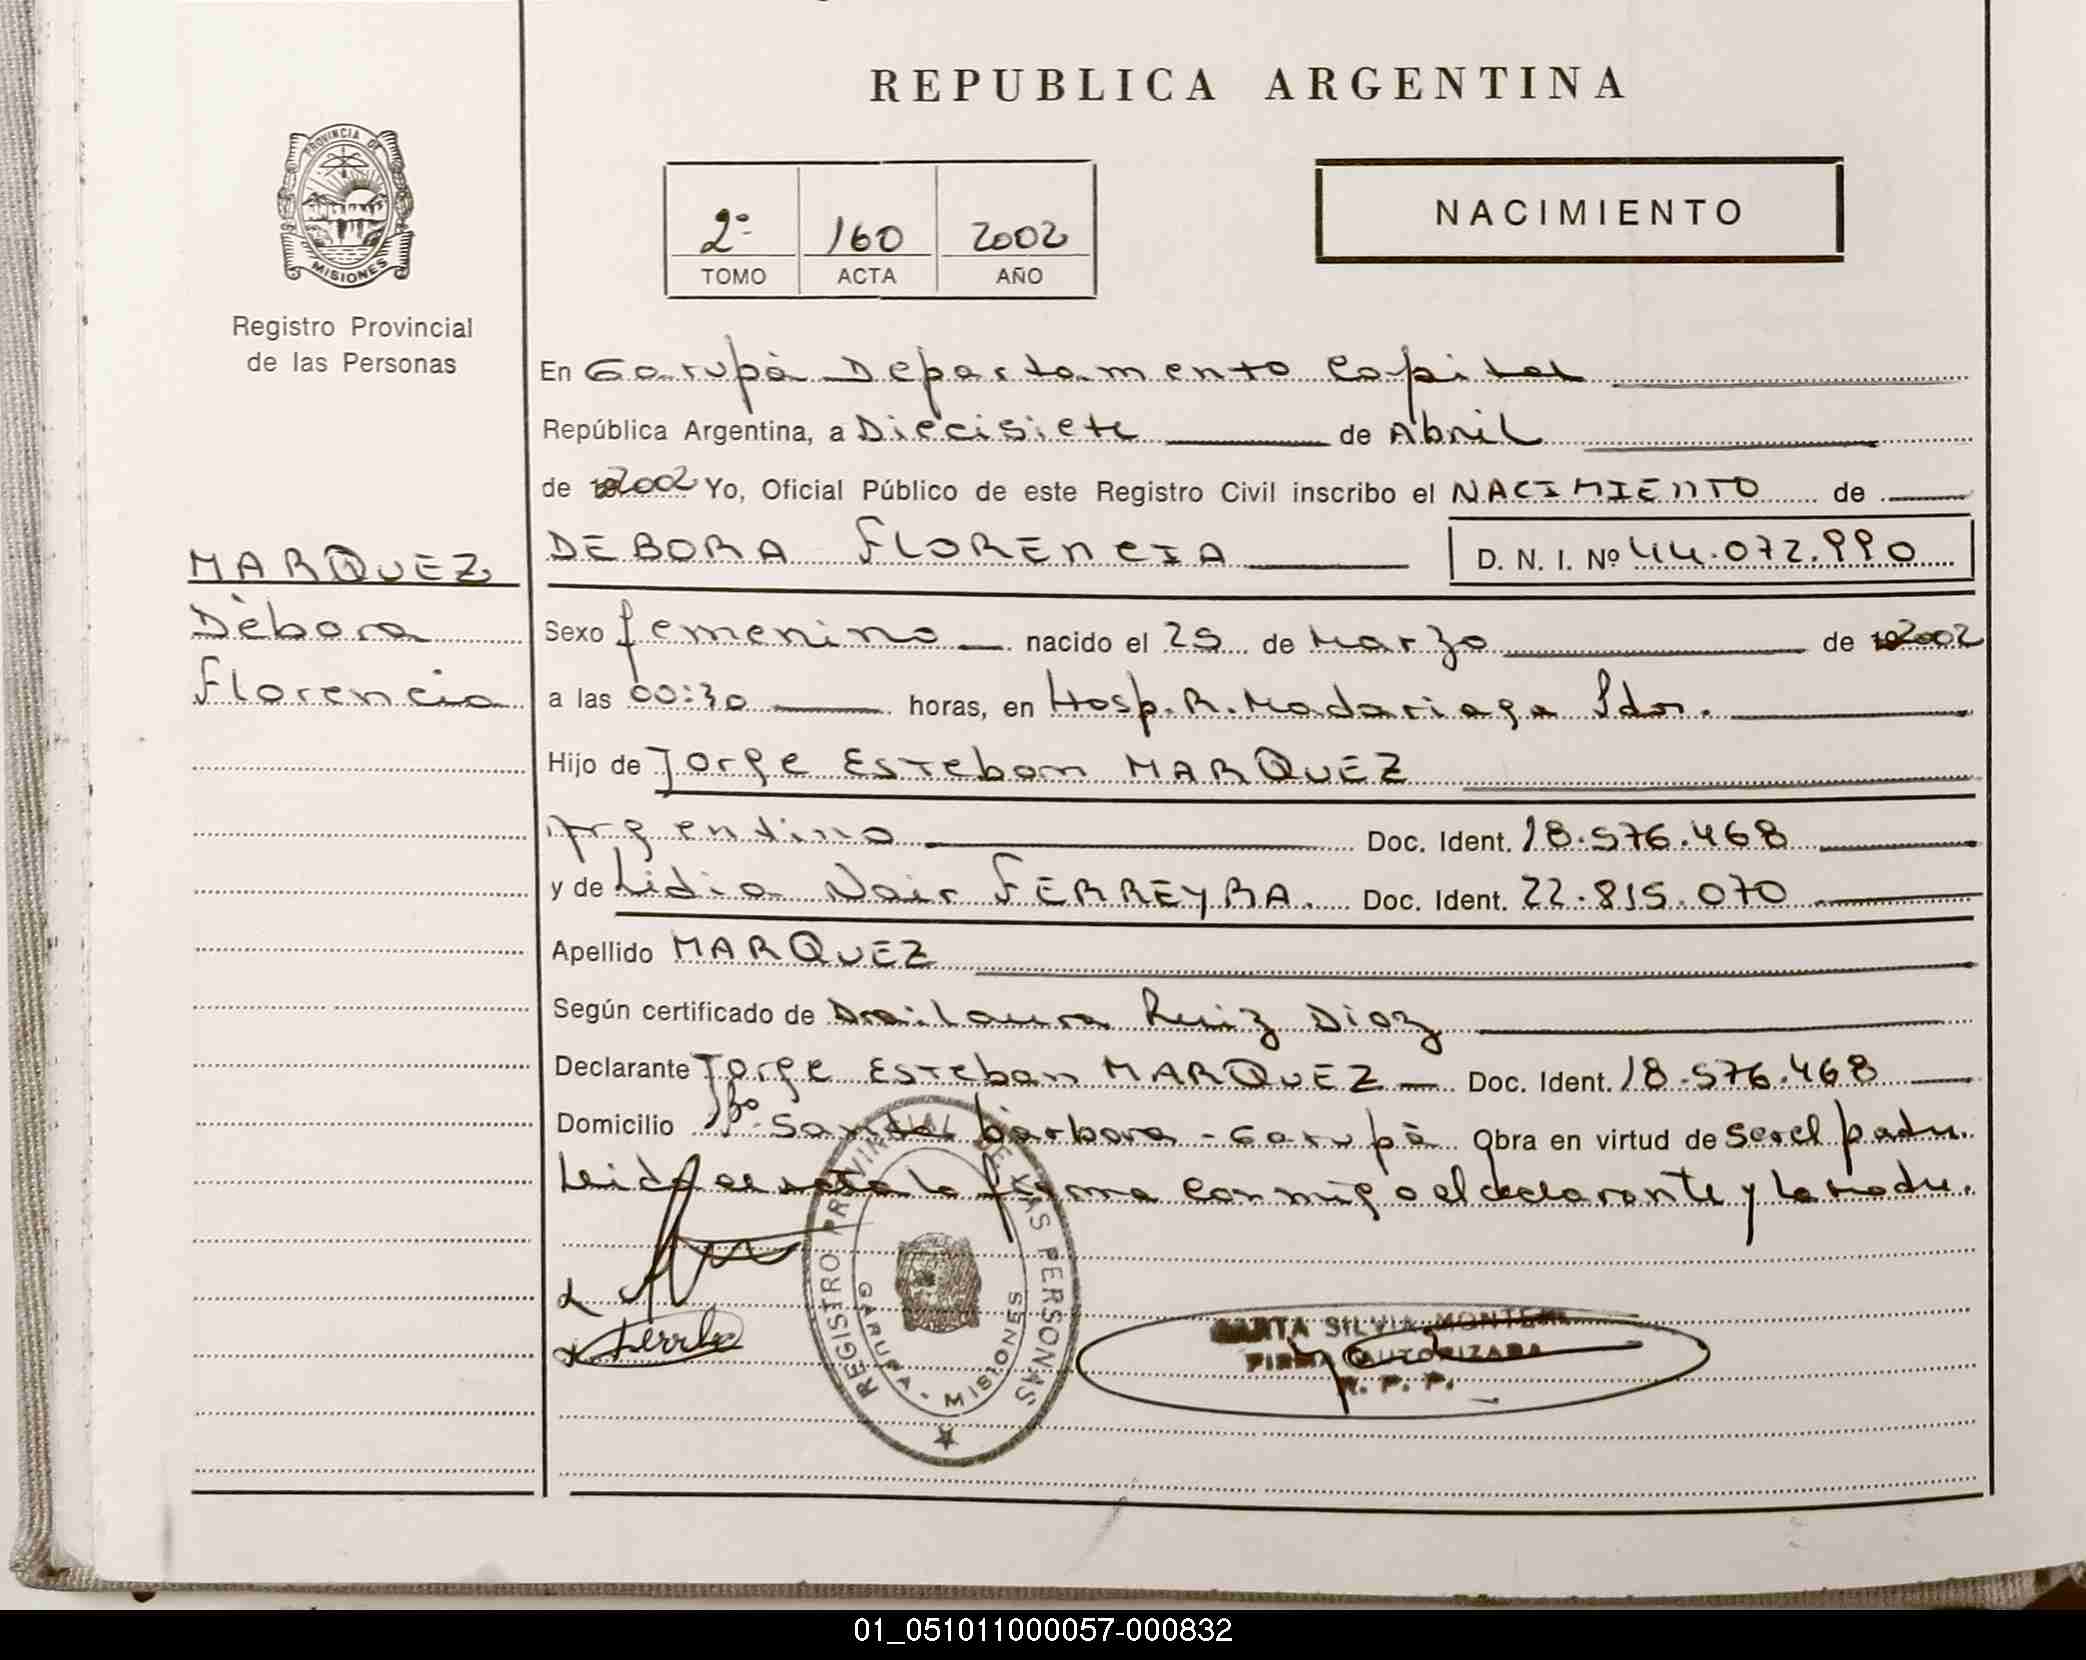 REPUBLICA ARGENTINA
PROVINCIA DE
MISIONES
Registro Provincial
de las Personas
2º 160 2002
TOMO ACTA AÑO
NACIMIENTO
En Garupà Departamento Capital
República Argentina, a Diecisiete de Abril
de 2002 Yo, Oficial Público de este Registro Civil inscribo el NACIMIENTO de
MARQUEZ
Dèbora
Florencia
DEBORA FLORENCIA D. N. I. Nº 44.072.990
Sexo femenino nacido el 25 de Marzo de 2002
a las 00:30 horas, en Hosp. R. Madariaga Pdas.
Hijo de Jorge Esteban MARQUEZ
Argentino Doc. Ident. 18.576.468
y de Lidia Nair FERREYRA. Doc. Ident. 22.815.070
Apellido MARQUEZ
Según certificado de Dra. Laura Ruiz Diaz
Declarante Jorge Esteban MARQUEZ Doc. Ident. 18.576.468
Domicilio Bº Santa bàrbara - Garupà Obra en virtud de Ser el padre.
Leida el acta la firma conmigo el declarante y la madre.
REGISTRO PROVINCIAL DE LAS PERSONAS
GARUPA - MISIONES
SILVIA
FIRMA AUTORIZADA
R. P. P.
01_051011000057-000832